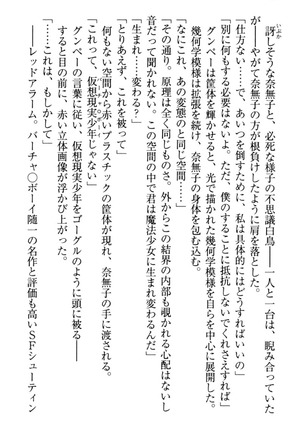 訝しそうな奈無子と、必死な様子の不思議白鳥――一人と一台は、睨み合っていた
が――やがて奈無子の方が根負けしたように肩を落とした。
「仕方ない……で、あいつを倒すために、私は具体的にはどうすればいいの」
「別に何もする必要はないよ。ただ、僕のすることに抵抗しないでくれさえすれば」
グンペーは筐体を輝かせると、光で描かれた幾何学模様を自らを中心に展開した。
幾何学模様は拡張を続け、奈無子の身体を包み込む。
「なにこれ、あの変態のと同じ空間……」
「その通り。原理は全く同じものさ。外からこの結界の内部も覗かれる心配はないし
音だって聞かれない。この空間の中で君は魔法少女に生まれ変わるんだ」
「生まれ……変わる?」
「とりあえず、これを被って」
何もない空間から赤いプラスチックの筐体が現れ、奈無子の手に渡される。
「これって、仮想現実少年じゃない」
グンペーの言葉に従い、仮想現実少年をゴーグルのように頭に被る――
すると目の前に、赤い立体画像が浮かび上がった。
「――これは、もしかして」
――レッドアラーム。バーチャ〇ボーイ随一の名作と評価も高いSFシューティン